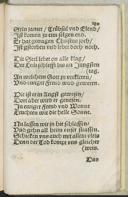 Sein jamer / Trübsal vnd Elend /
Ist komen zu eim selgen end
Er hat getragen Christus joch /
Ist gestorben vnd lebet doch noch.
Die Seel lebet on alle klag /
Der Leib schlefft bis am Jüngsten
(tag.
An welchem Gott jn verkleren /
Vnd ewiger Frewd wird geweren.
Hie ist er in Angst gewesen /
Dort aber wird er genesen /
In ewiger Frewd vnd Wonne
Leuchten wie die helle Sonne.
Nu lassen wir jn hie schlaffen /
Vnd gehn all heim vnser strassen /
Schicken vns auch mit allem vleis
Denn der Tod kompt vns gleicher
(weis.
Das